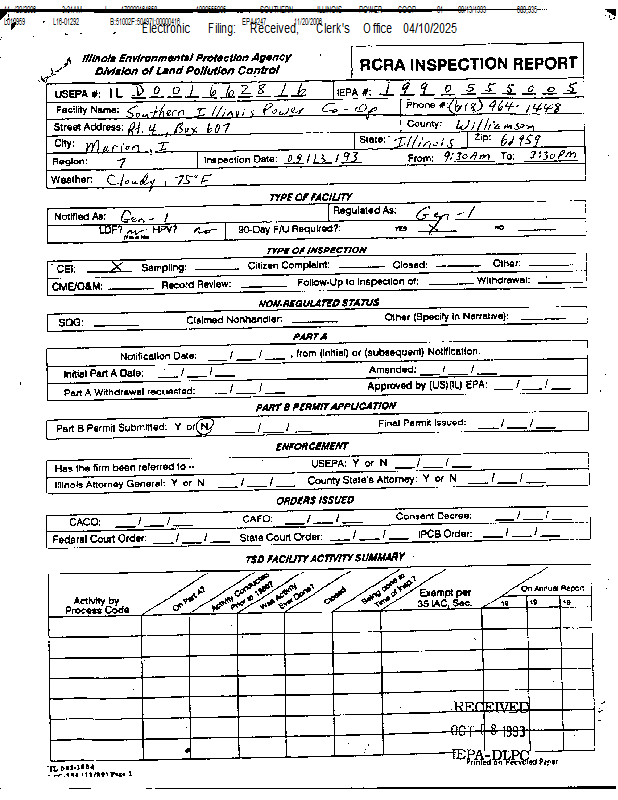 Electronic Filing: Received, Clerk's Office 04/10/2025
Illinois Environmental Protection Agency
Division of Land Pollution Control
RCRA INSPECTION REPORT
USEPA #: IL D 0 0 1 6 6 2 8 1 6 IEPA #: 1 9 9 0 5 5 5 0 0 5
Facility Name: Southern Illinois Power Co-Op Phone #: (618) 964-1448
Street Address: Rt. 4, Box 607 County: Williamson
City: Marion, I State: Illinois Zip: 62959
Region: 7 Inspection Date: 09/13/93 From: 9:30AM To: 3:30PM
Weather: Cloudy, 75°F
TYPE OF FACILITY
Notified As: Gen-1 Regulated As: Gen-1
LDF? no HPV? no 90-Day F/U Required?: YES X NO
TYPE OF INSPECTION
CEI: X Sampling: Citizen Complaint: Closed: Other:
CME/O&M: Record Review: Follow-Up to Inspection of: Withdrawal:
NON-REGULATED STATUS
SQG: Claimed Nonhandler: Other (Specify in Narrative):
PART A
Notification Date: / / , from (initial) or (subsequent) Notification.
Initial Part A Date: / / Amended: / /
Part A Withdrawal requested: / / Approved by (US)(IL) EPA: / /
PART B PERMIT APPLICATION
Part B Permit Submitted: Y or N / / Final Permit Issued: / /
ENFORCEMENT
Has the firm been referred to -- USEPA: Y or N / /
Illinois Attorney General: Y or N / / County State's Attorney: Y or N / /
ORDERS ISSUED
CACO: / / CAFO: / / Consent Decree: / /
Federal Court Order: / / State Court Order: / / IPCB Order: / /
TSD FACILITY ACTIVITY SUMMARY
Activity by Process Code On Part A? Activity Conducted Prior to 1980? Was Activity Ever Done? Closed Being done at Time of Insp.? Exempt per 35 IAC, Sec. On Annual Report
19 19 19
RECEIVED
OCT 8 1993
IEPA-DLPC
Printed on Recycled Paper